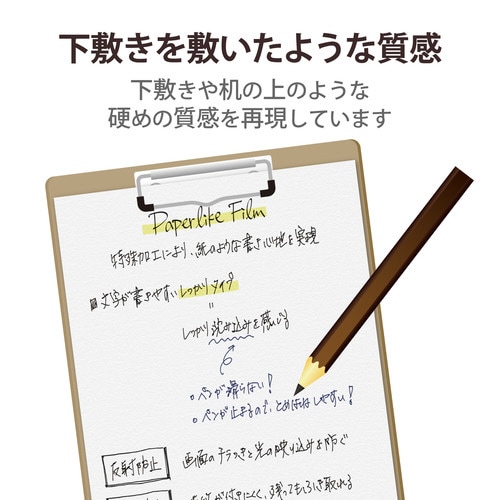 下敷きを敷いたような質感
下敷きや机の上のような
硬めの質感を再現しています
Paperlike Film
特殊加工により、紙のような書き心地を実現
文字が書きやすいしっかりタイプ
=
しっかり沈み込みを感じる
。ペンが滑らない!
。ペンが止まるので、とめはねはしやすい!
反射防止 画面のチラつきと光の映り込みを防ぐ